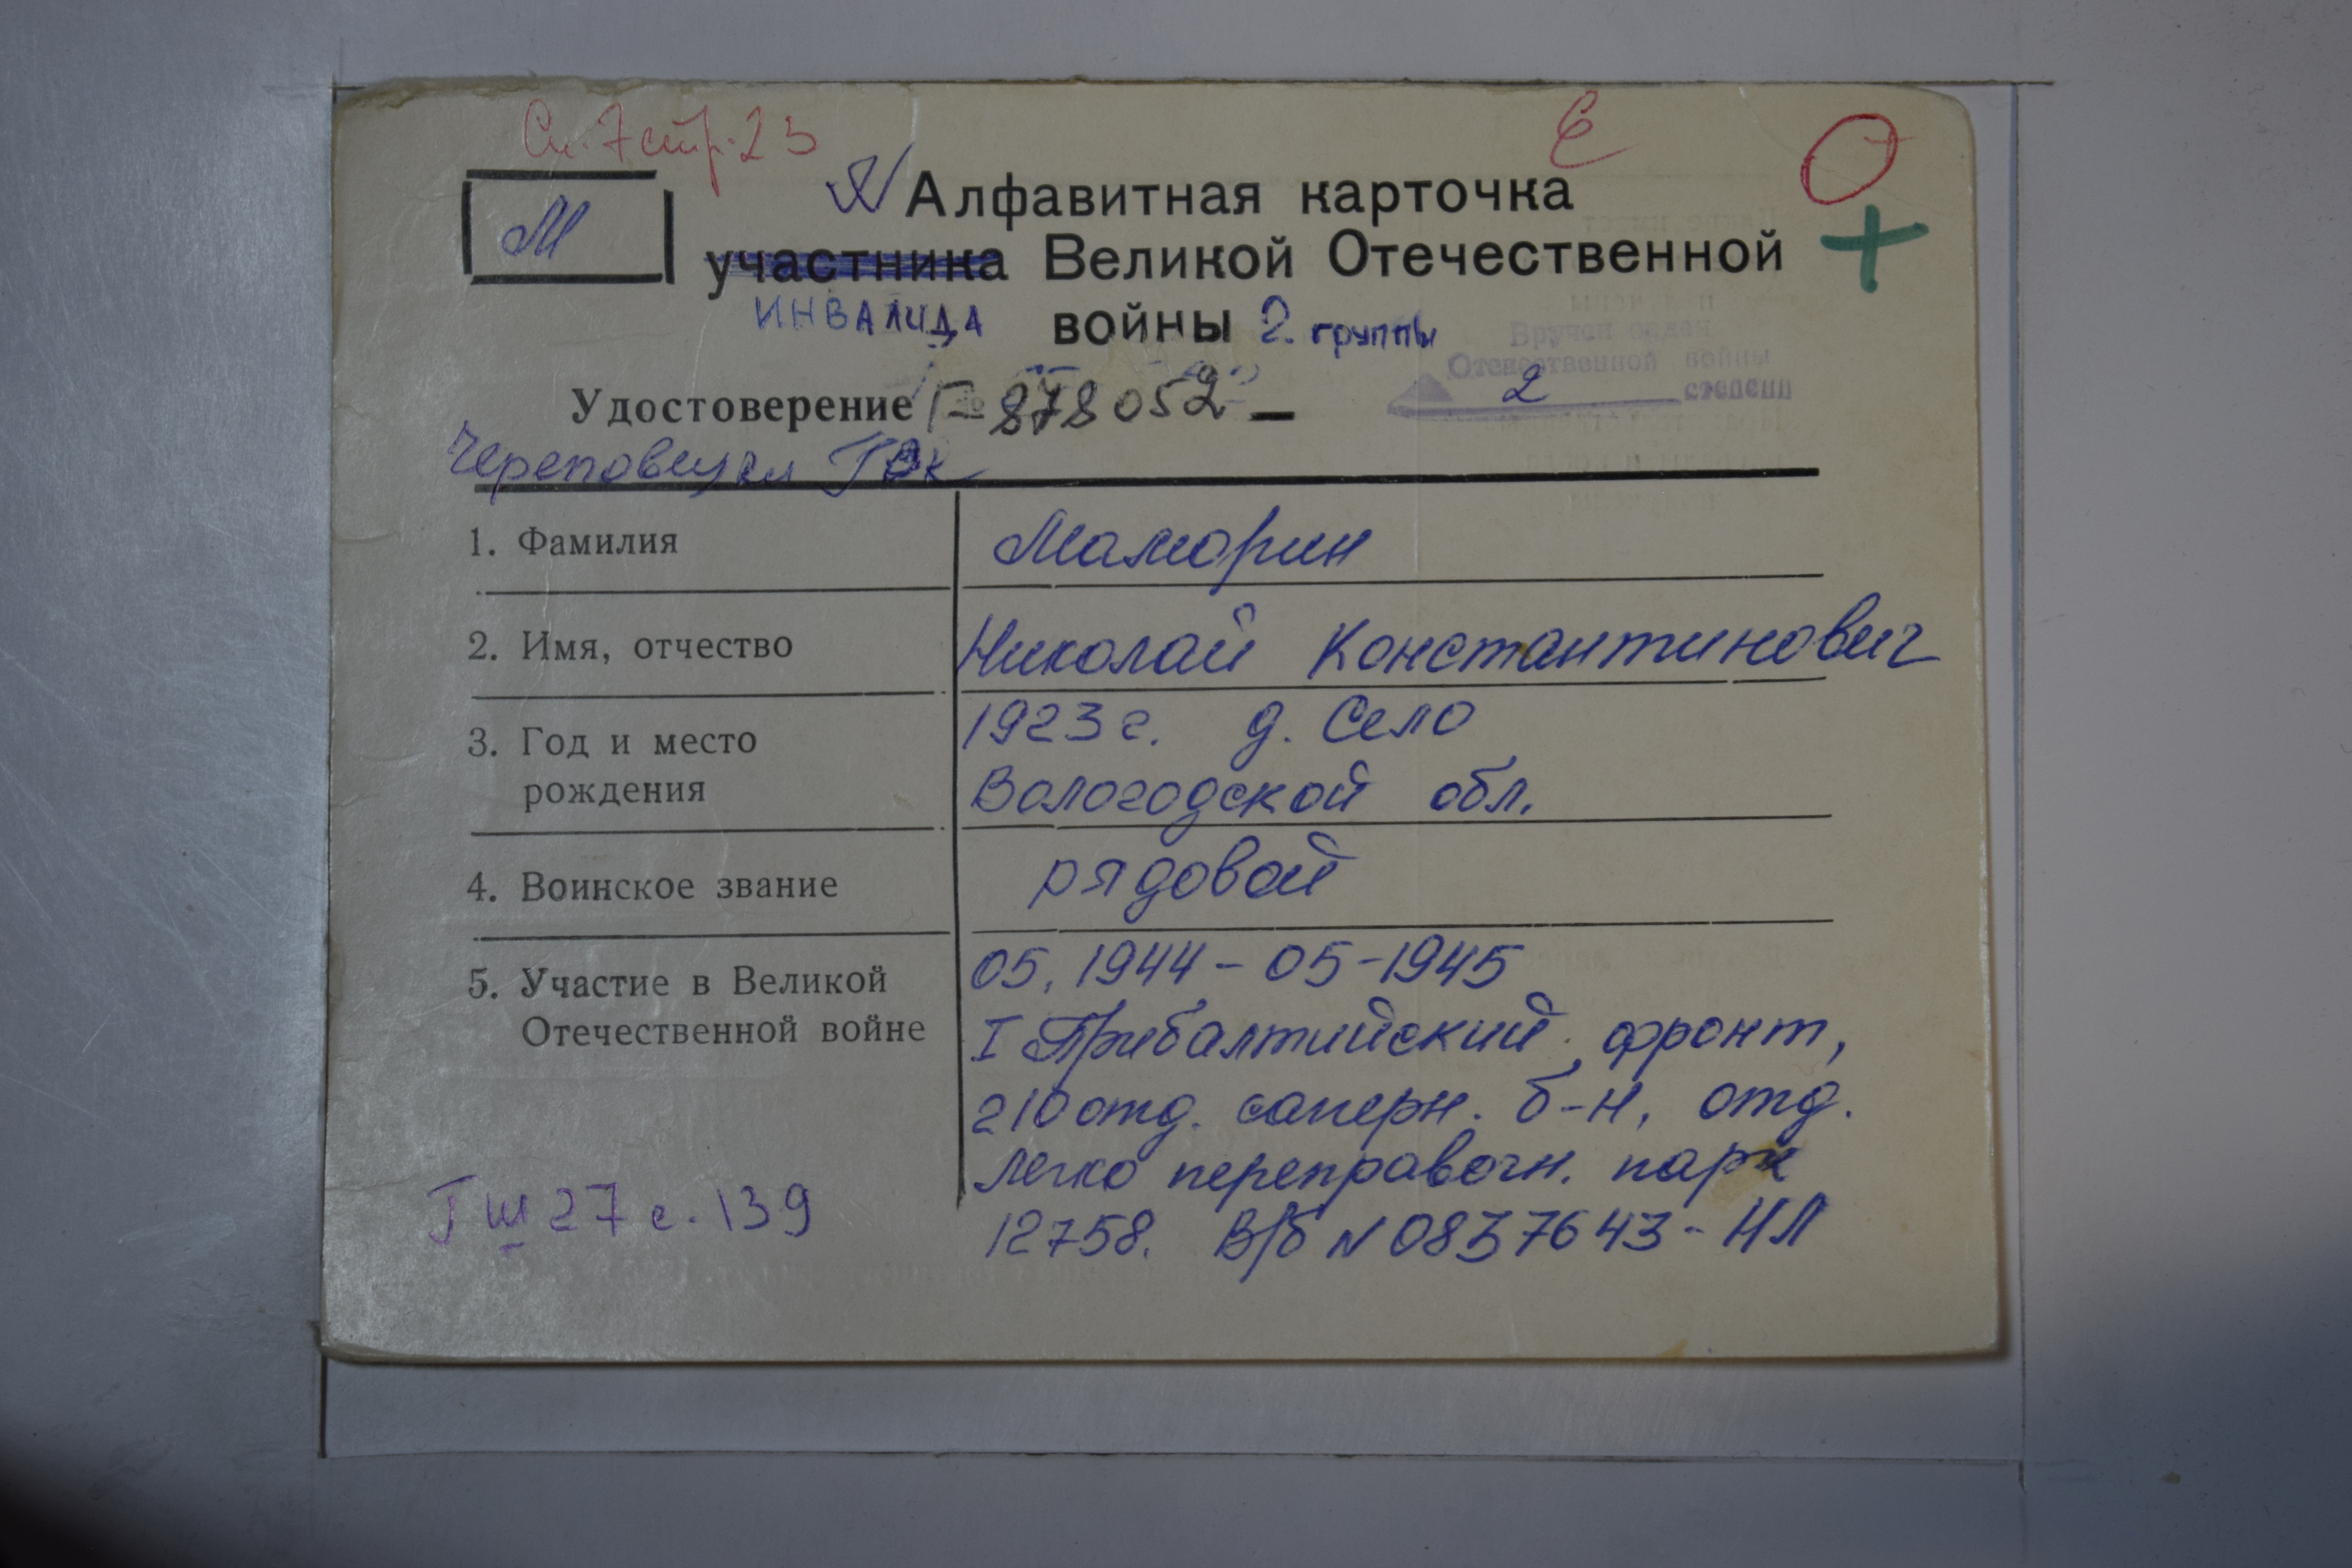 Сп. 7 стр. 23 Е О
М
Алфавитная карточка +
участника Великой Отечественной
ИНВАЛИДА войны 2. группы
Вручен орден
Отечественной войны
2 степени
Удостоверение Г-878052 —
Череповецкий ГВК
1. Фамилия Маморин
2. Имя, отчество Николай Константинович
3. Год и место 1923 г. д. Село
рождения Вологодской обл.
4. Воинское звание рядовой
05.1944 - 05-1945
5. Участие в Великой
Отечественной войне I Прибалтийский фронт,
210 отд. саперн. б-н, отд.
легко переправочн. парк
ГШ 27 с. 139 12758. В/б N 0837643 - НЛ